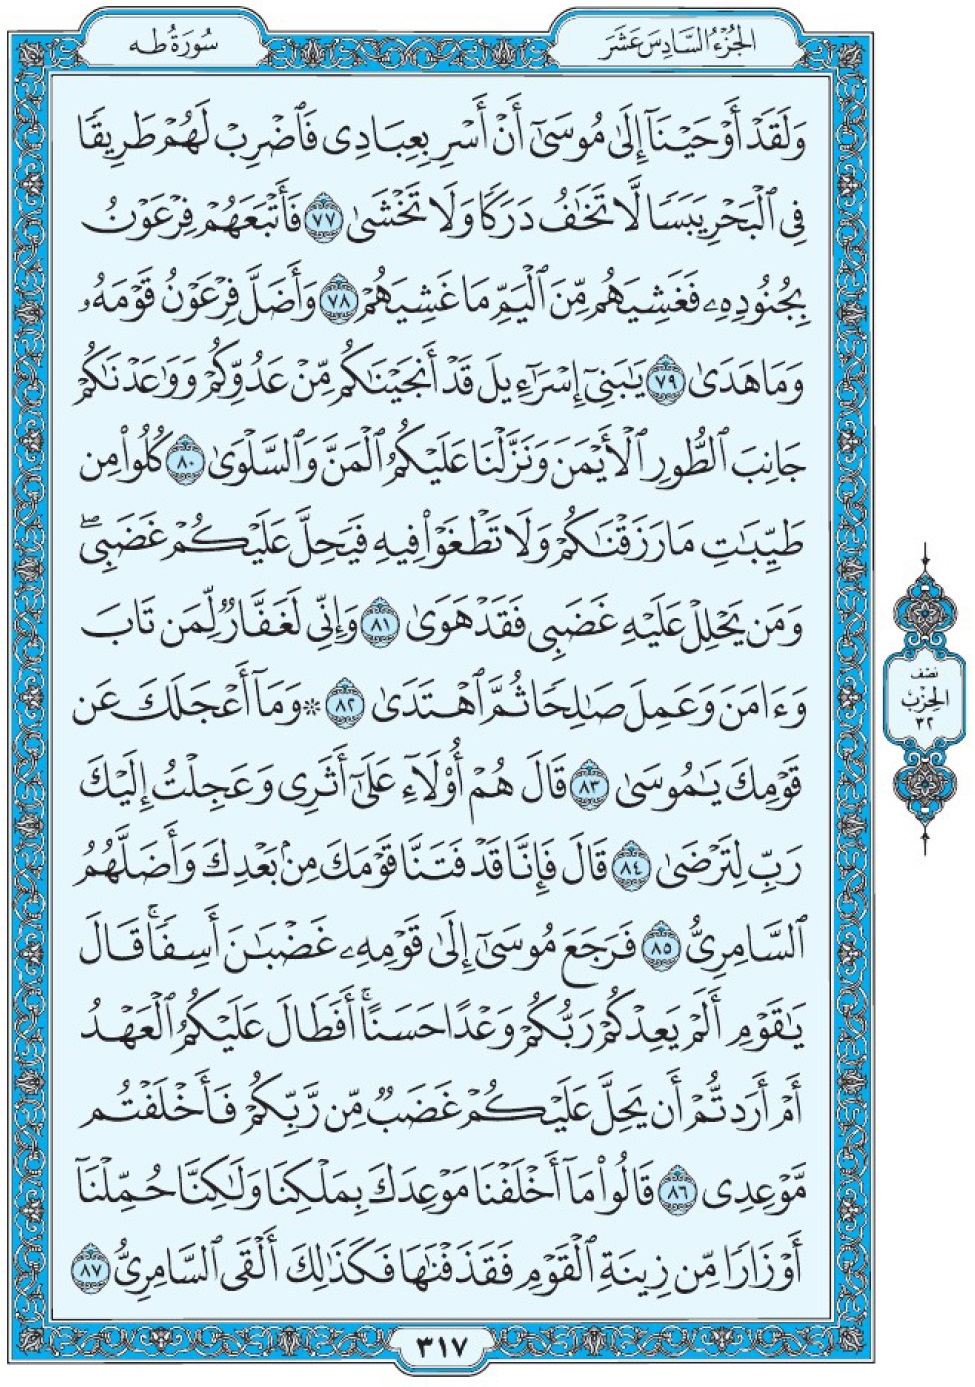 الجُزْءُ السَّادِسَ عَشَرَ
سُورَةُ طه
وَلَقَدْ أَوْحَيْنَآ إِلَىٰ مُوسَىٰٓ أَنْ أَسْرِ بِعِبَادِى فَٱضْرِبْ لَهُمْ طَرِيقًا
فِى ٱلْبَحْرِ يَبَسًا لَّا تَخَٰفُ دَرَكًا وَلَا تَخْشَىٰ ٧٧ فَأَتْبَعَهُمْ فِرْعَوْنُ
بِجُنُودِهِۦ فَغَشِيَهُم مِّنَ ٱلْيَمِّ مَا غَشِيَهُمْ ٧٨ وَأَضَلَّ فِرْعَوْنُ قَوْمَهُۥ
وَمَا هَدَىٰ ٧٩ يَٰبَنِىٓ إِسْرَٰٓءِيلَ قَدْ أَنجَيْنَٰكُم مِّنْ عَدُوِّكُمْ وَوَٰعَدْنَٰكُمْ
جَانِبَ ٱلطُّورِ ٱلْأَيْمَنَ وَنَزَّلْنَا عَلَيْكُمُ ٱلْمَنَّ وَٱلسَّلْوَىٰ ٨٠ كُلُوا۟ مِن
طَيِّبَٰتِ مَا رَزَقْنَٰكُمْ وَلَا تَطْغَوْا۟ فِيهِ فَيَحِلَّ عَلَيْكُمْ غَضَبِىۖ
وَمَن يَحْلِلْ عَلَيْهِ غَضَبِى فَقَدْ هَوَىٰ ٨١ وَإِنِّى لَغَفَّارٌ لِّمَن تَابَ
وَءَامَنَ وَعَمِلَ صَٰلِحًا ثُمَّ ٱهْتَدَىٰ ٨٢ * وَمَآ أَعْجَلَكَ عَن
قَوْمِكَ يَٰمُوسَىٰ ٨٣ قَالَ هُمْ أُو۟لَآءِ عَلَىٰٓ أَثَرِى وَعَجِلْتُ إِلَيْكَ
رَبِّ لِتَرْضَىٰ ٨٤ قَالَ فَإِنَّا قَدْ فَتَنَّا قَوْمَكَ مِنۢ بَعْدِكَ وَأَضَلَّهُمُ
ٱلسَّامِرِىُّ ٨٥ فَرَجَعَ مُوسَىٰٓ إِلَىٰ قَوْمِهِۦ غَضْبَٰنَ أَسِفًاۚ قَالَ
يَٰقَوْمِ أَلَمْ يَعِدْكُمْ رَبُّكُمْ وَعْدًا حَسَنًاۚ أَفَطَالَ عَلَيْكُمُ ٱلْعَهْدُ
أَمْ أَرَدتُّمْ أَن يَحِلَّ عَلَيْكُمْ غَضَبٌ مِّن رَّبِّكُمْ فَأَخْلَفْتُم
مَّوْعِدِى ٨٦ قَالُوا۟ مَآ أَخْلَفْنَا مَوْعِدَكَ بِمَلْكِنَا وَلَٰكِنَّا حُمِّلْنَآ
أَوْزَارًا مِّن زِينَةِ ٱلْقَوْمِ فَقَذَفْنَٰهَا فَكَذَٰلِكَ أَلْقَى ٱلسَّامِرِىُّ ٨٧
نصف
الحزب
٣٢
٣١٧